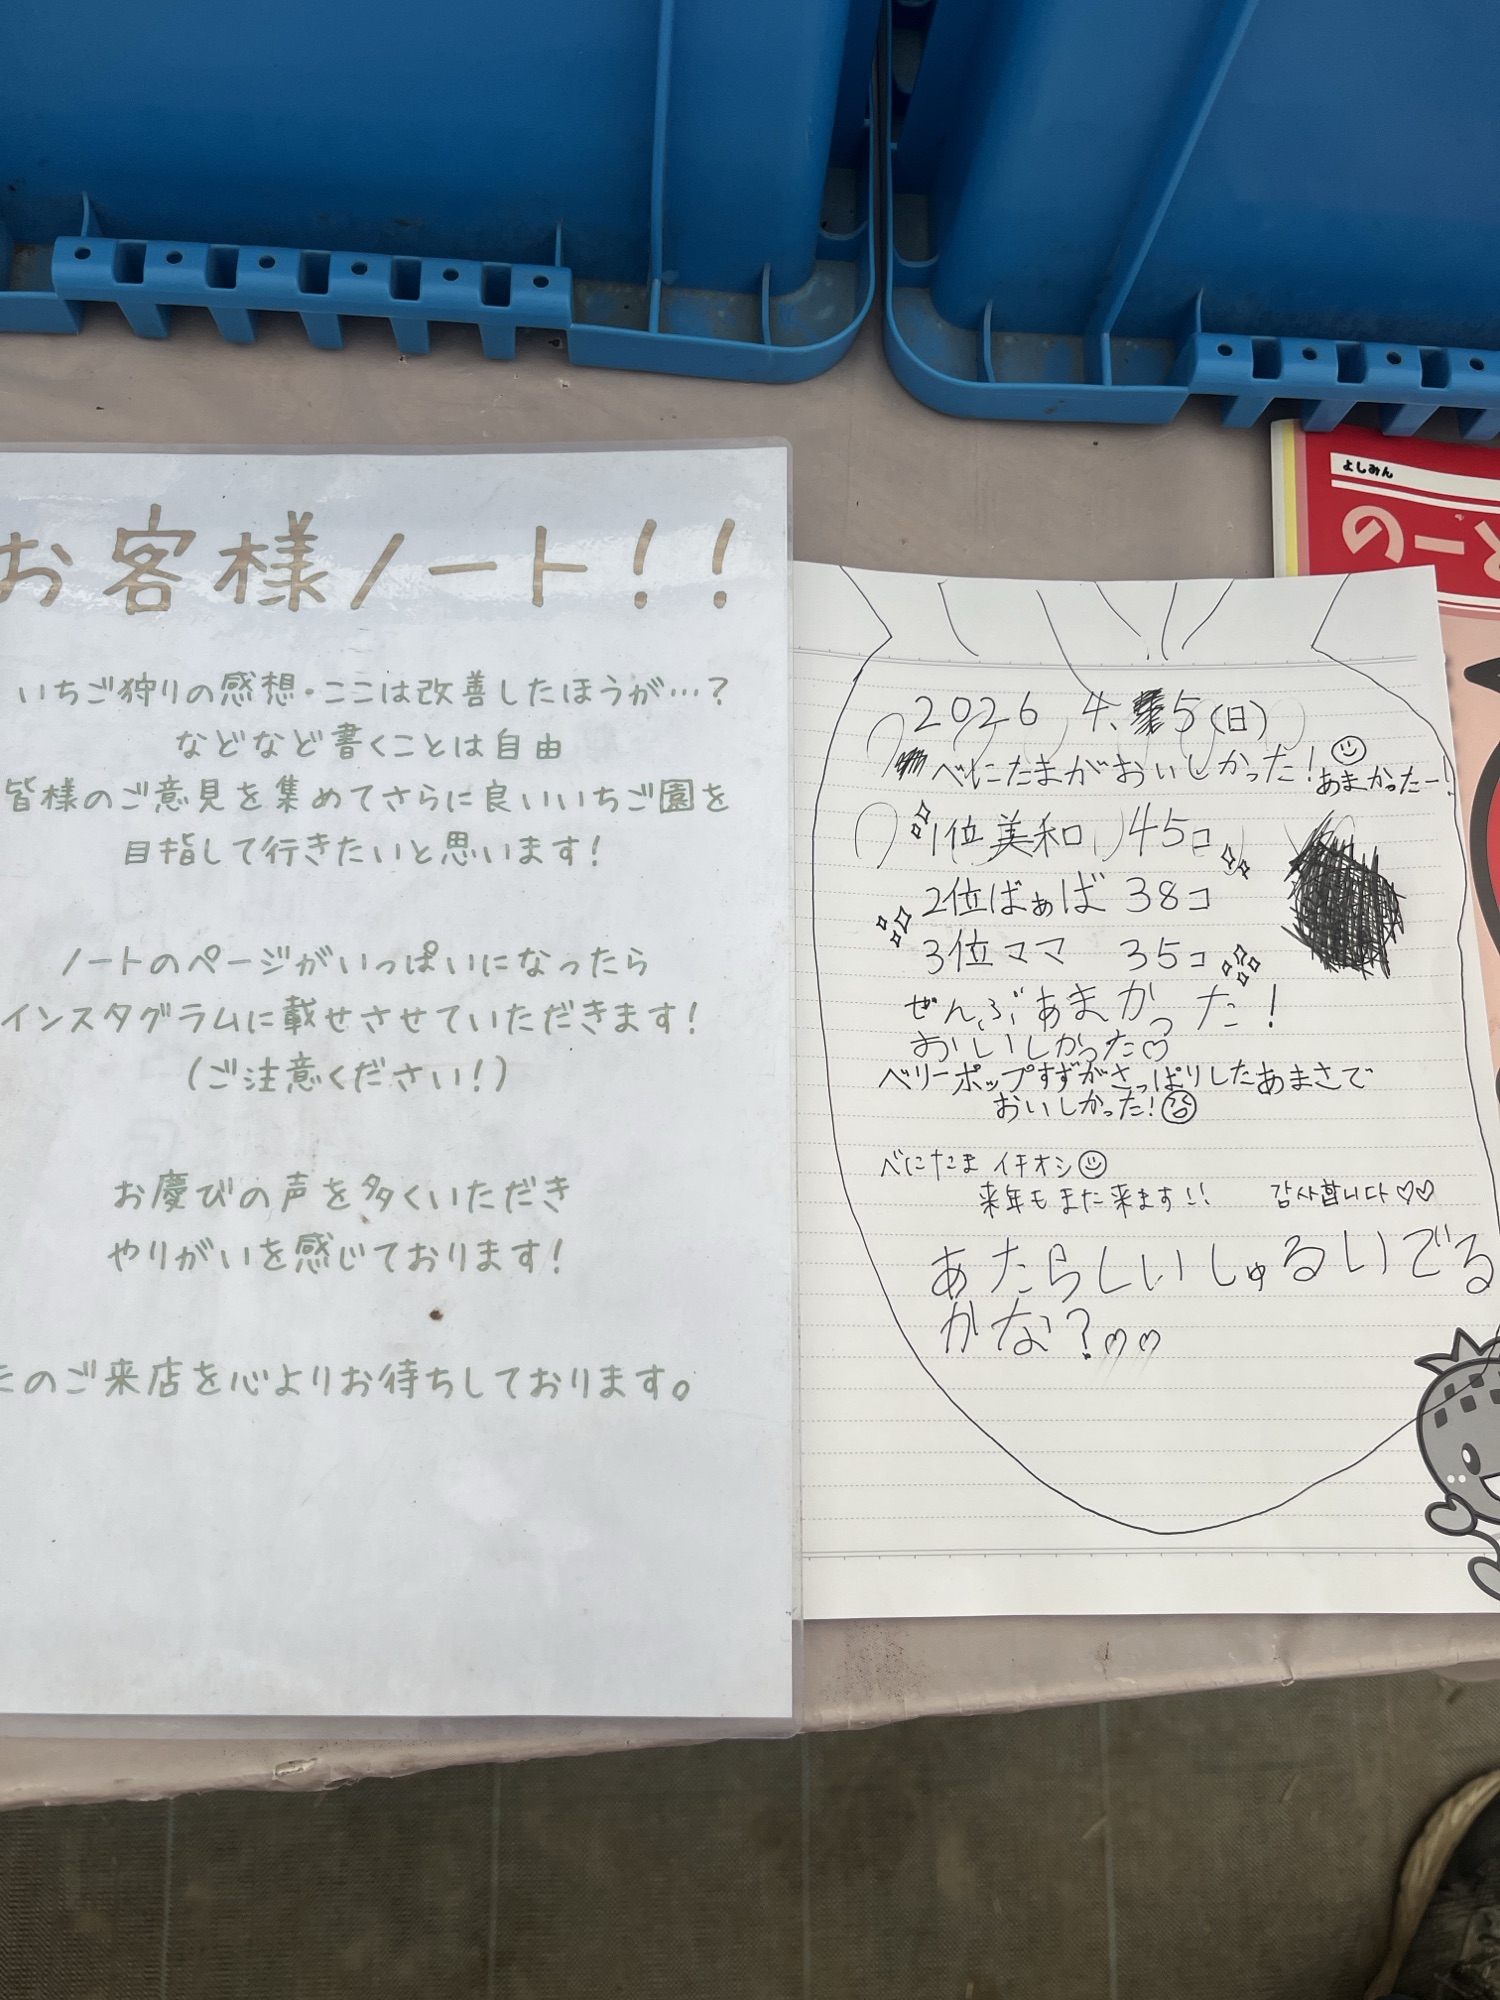 お客様ノート!!
いちご狩りの感想・ここは改善したほうが…?
などなど書くことは自由
皆様のご意見を集めてさらに良いいちご園を
目指して行きたいと思います!
ノートのページがいっぱいになったら
インスタグラムに載せさせていただきます!
(ご注意ください!)
お慶びの声を多くいただき
やりがいを感じております!
たのご来店を心よりお待ちしております。
よしみん
の
2026 4. 5(日)
べにたまがおいしかった!
あまかったー!
1位美和 45コ
2位ばぁば 38コ
3位ママ 35コ
ぜんぶあまかった!
おいしかった♡
ベリーポップすずがさっぱりしたあまさで
おいしかった!
べにたま イチオシ
来年もまた来ます!! 감사합니다♡♡
あたらしいしゅるいでる
かな?♡♡